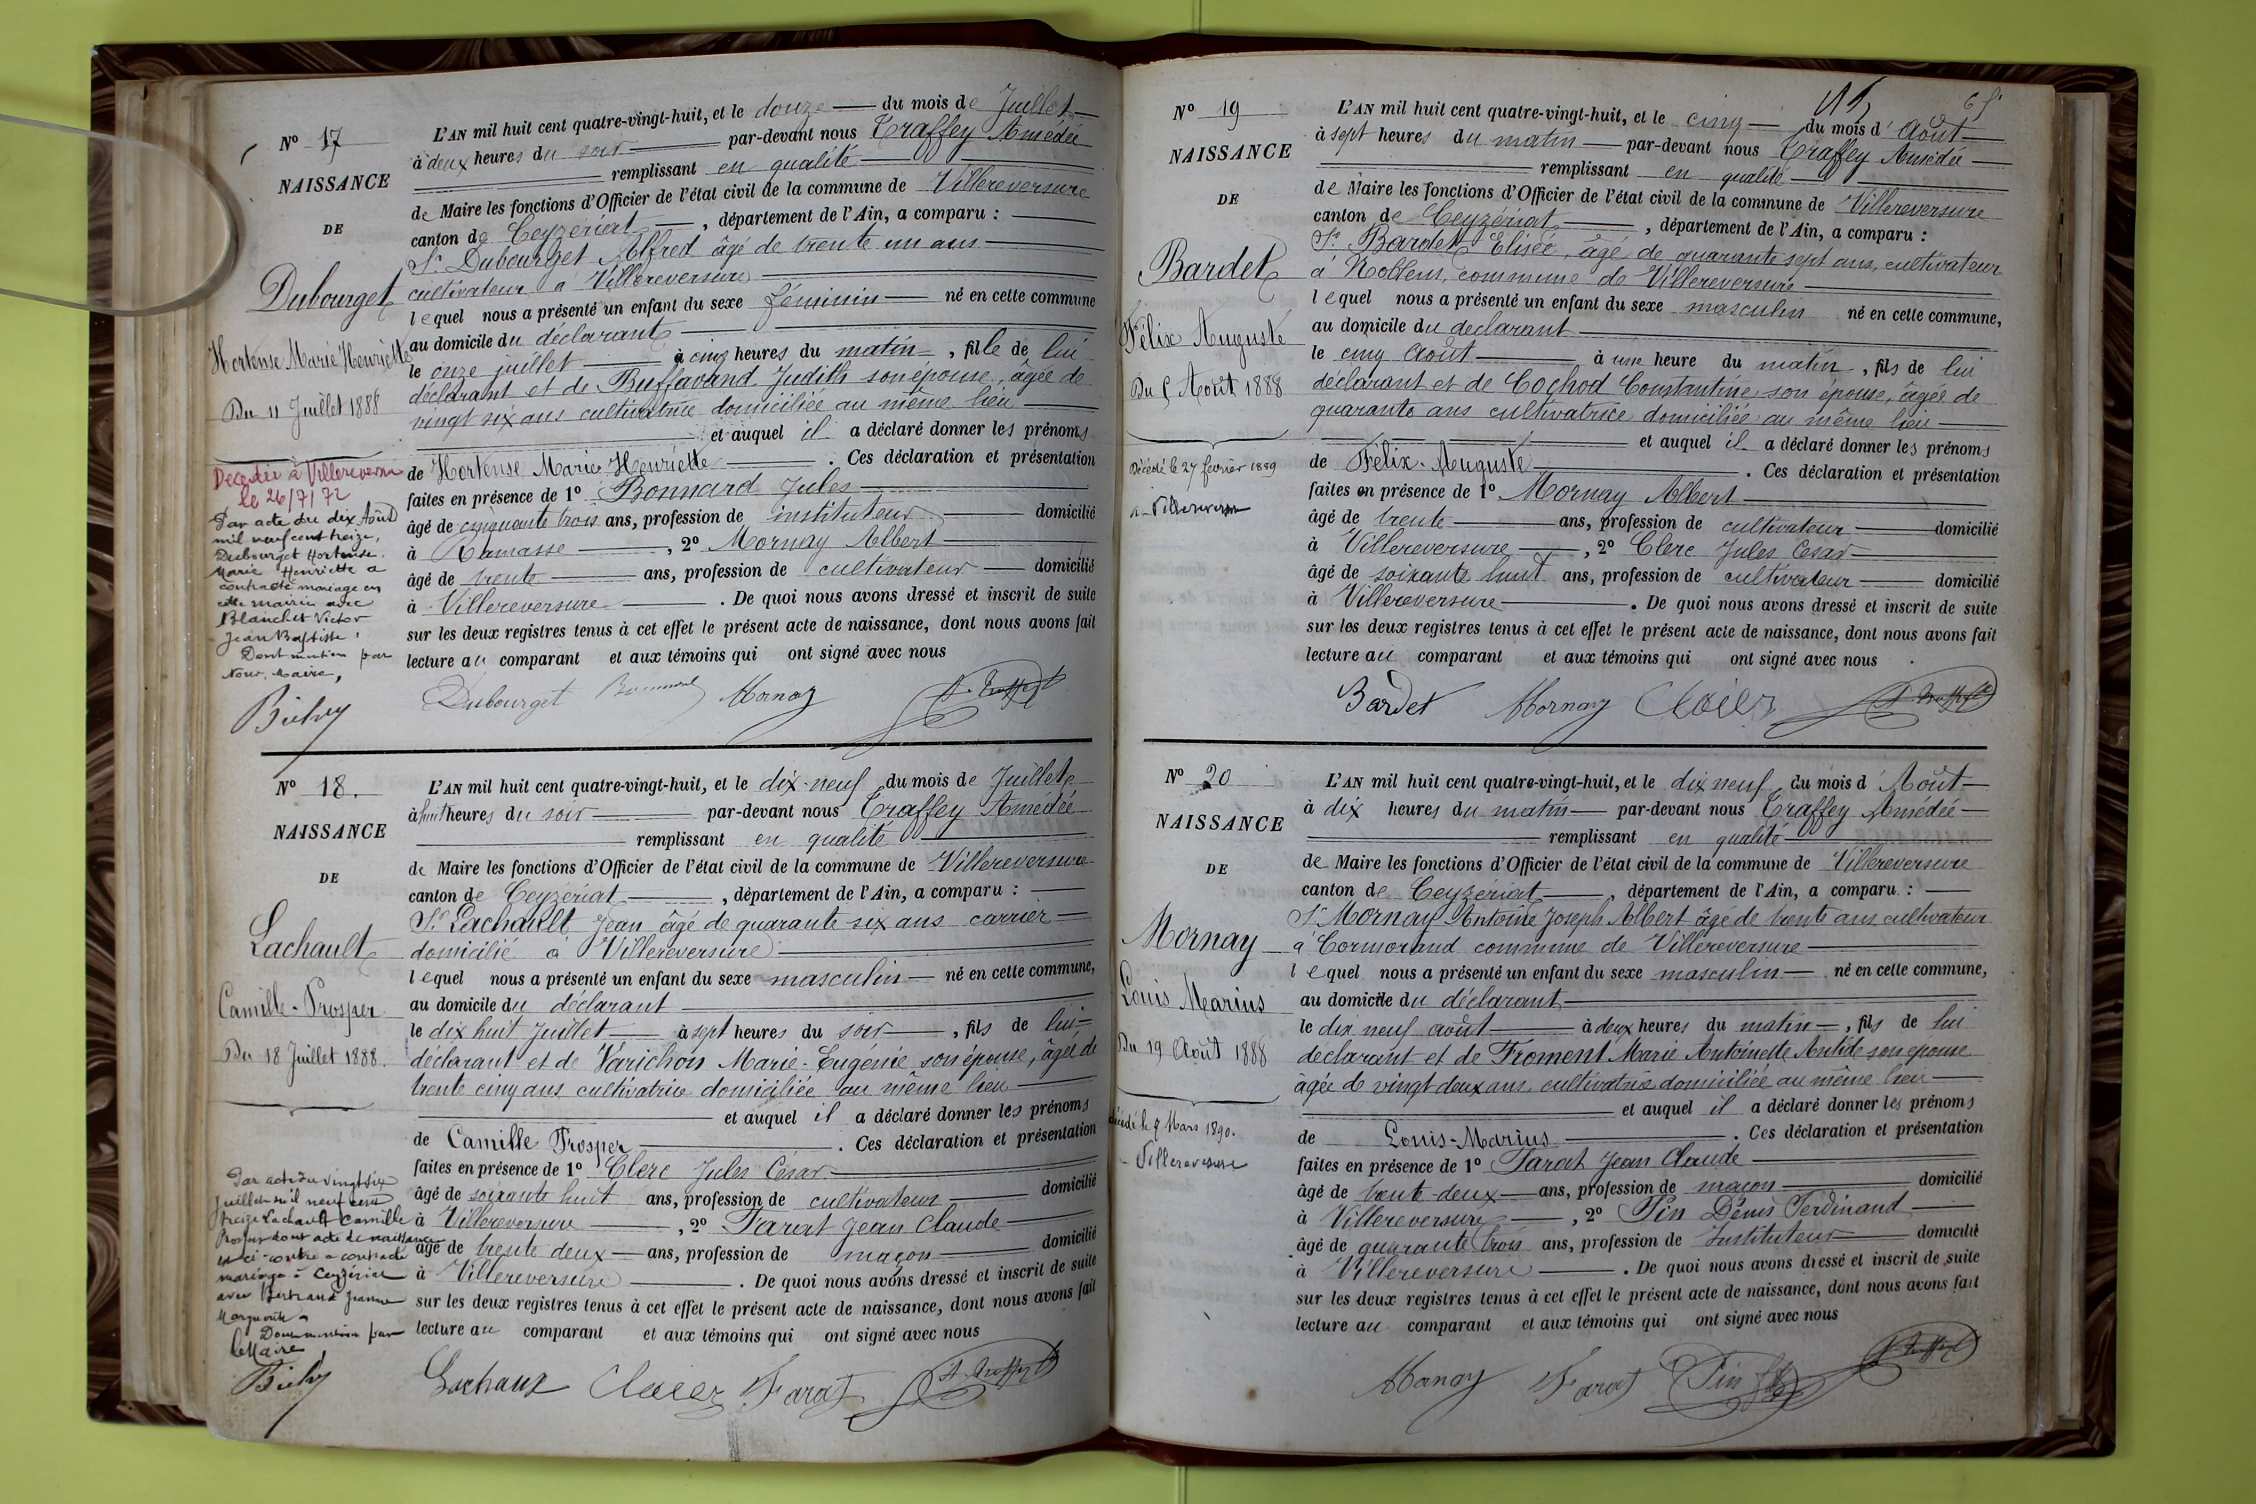 Nº 17
NAISSANCE
DE
Dubourget
Hortense Marie Henriette
Du 11 Juillet 1888
Décédée à Villereversure
le 26/7/72
Par acte du dix Août
mil neuf cent treize,
Dubourget Hortense
Marie Henriette a
contracté mariage en
cette mairie avec
Blanchet Victor
Jean Baptiste
Dont mention par
Nous, Maire,
L'AN mil huit cent quatre-vingt-huit, et le douze du mois de Juillet
à deux heures du soir par-devant nous Traffey Amédée
remplissant en qualité
de Maire les fonctions d'Officier de l'état civil de la commune de Villereversure
canton de Ceyzériat, département de l'Ain, a comparu :
Sr Dubourget Alfred âgé de trente un ans
cultivateur à Villereversure
lequel nous a présenté un enfant du sexe féminin né en cette commune
au domicile du déclarant
le onze juillet à cinq heures du matin, fille de lui
déclarant et de Buffavand Judith son épouse, âgée de
vingt six ans cultivatrice domiciliée au même lieu
et auquel il a déclaré donner les prénoms
de Hortense Marie Henriette. Ces déclaration et présentation
faites en présence de 1º Bonnard Jules
âgé de cinquante trois ans, profession de instituteur domicilié
à Ramasse, 2º Mornay Albert
âgé de trente ans, profession de cultivateur domicilié
à Villereversure. De quoi nous avons dressé et inscrit de suite
sur les deux registres tenus à cet effet le présent acte de naissance, dont nous avons fait
lecture au comparant et aux témoins qui ont signé avec nous
Dubourget Bonnard Mornay A. Traffey
Nº 18.
NAISSANCE
DE
Lachault
Camille-Prosper
Du 18 Juillet 1888.
Par acte du vingt six
Juillet mil neuf cent
treize Lachault Camille
Prosper dont acte de naissance
est ci-contre a contracté
mariage à Ceyzériat
avec Bertrand Jeanne
Marguerite
Dont mention par
le Maire
L'AN mil huit cent quatre-vingt-huit, et le dix-neuf du mois de Juillet
à huit heures du soir par-devant nous Traffey Amédée
remplissant en qualité
de Maire les fonctions d'Officier de l'état civil de la commune de Villereversure
canton de Ceyzériat, département de l'Ain, a comparu :
Sr Lachault Jean âgé de quarante six ans carrier
domicilié à Villereversure
lequel nous a présenté un enfant du sexe masculin né en cette commune,
au domicile du déclarant
le dix huit Juillet à sept heures du soir, fils de lui
déclarant et de Varichon Marie-Eugénie son épouse, âgée de
trente cinq ans cultivatrice domiciliée au même lieu
et auquel il a déclaré donner les prénoms
de Camille Prosper. Ces déclaration et présentation
faites en présence de 1º Clerc Jules César
âgé de soixante huit ans, profession de cultivateur domicilié
à Villereversure, 2º Farat Jean Claude
âgé de trente deux ans, profession de maçon domicilié
à Villereversure. De quoi nous avons dressé et inscrit de suite
sur les deux registres tenus à cet effet le présent acte de naissance, dont nous avons fait
lecture au comparant et aux témoins qui ont signé avec nous
Lachaux Farat A. Traffey
Nº 19
NAISSANCE
DE
Bardet
Félix Auguste
Du 5 Août 1888
Décédé le 27 février 1889
à Villereversure
L'AN mil huit cent quatre-vingt-huit, et le cinq du mois d'Août
à sept heures du matin par-devant nous Traffey Amédée
remplissant en qualité
de Maire les fonctions d'Officier de l'état civil de la commune de Villereversure
canton de Ceyzériat, département de l'Ain, a comparu :
Sr Bardet Elisée, âgé de quarante sept ans, cultivateur
à Noblens, commune de Villereversure
lequel nous a présenté un enfant du sexe masculin né en cette commune,
au domicile du déclarant
le cinq Août à une heure du matin, fils de lui
déclarant et de Cochod Constantine son épouse, âgée de
quarante ans cultivatrice domiciliée au même lieu
et auquel il a déclaré donner les prénoms
de Félix-Auguste. Ces déclaration et présentation
faites en présence de 1º Mornay Albert
âgé de trente ans, profession de cultivateur domicilié
à Villereversure, 2º Clerc Jules César
âgé de soixante huit ans, profession de cultivateur domicilié
à Villereversure. De quoi nous avons dressé et inscrit de suite
sur les deux registres tenus à cet effet le présent acte de naissance, dont nous avons fait
lecture au comparant et aux témoins qui ont signé avec nous
Bardet Mornay A. Traffey
Nº 20
NAISSANCE
DE
Mornay
Louis Marius
Du 19 Août 1888
Décédé le 7 Mars 1890.
à Villereversure
L'AN mil huit cent quatre-vingt-huit, et le dix neuf du mois d'Août
à dix heures du matin par-devant nous Traffey Amédée
remplissant en qualité
de Maire les fonctions d'Officier de l'état civil de la commune de Villereversure
canton de Ceyzériat, département de l'Ain, a comparu :
Sr Mornay Antoine Joseph Albert âgé de trente ans, cultivateur
à Cormorand commune de Villereversure
lequel nous a présenté un enfant du sexe masculin né en cette commune,
au domicile du déclarant
le dix neuf août à deux heures du matin, fils de lui
déclarant et de Froment Marie Antoinette Antide son épouse
âgée de vingt deux ans, cultivatrice domiciliée au même lieu
et auquel il a déclaré donner les prénoms
de Louis-Marius. Ces déclaration et présentation
faites en présence de 1º Farat Jean Claude
âgé de trente deux ans, profession de maçon domicilié
à Villereversure, 2º Pin Dénis Ferdinand
âgé de quarante trois ans, profession de Instituteur domicilié
à Villereversure. De quoi nous avons dressé et inscrit de suite
sur les deux registres tenus à cet effet le présent acte de naissance, dont nous avons fait
lecture au comparant et aux témoins qui ont signé avec nous
Mornay Farat Pin A. Traffey